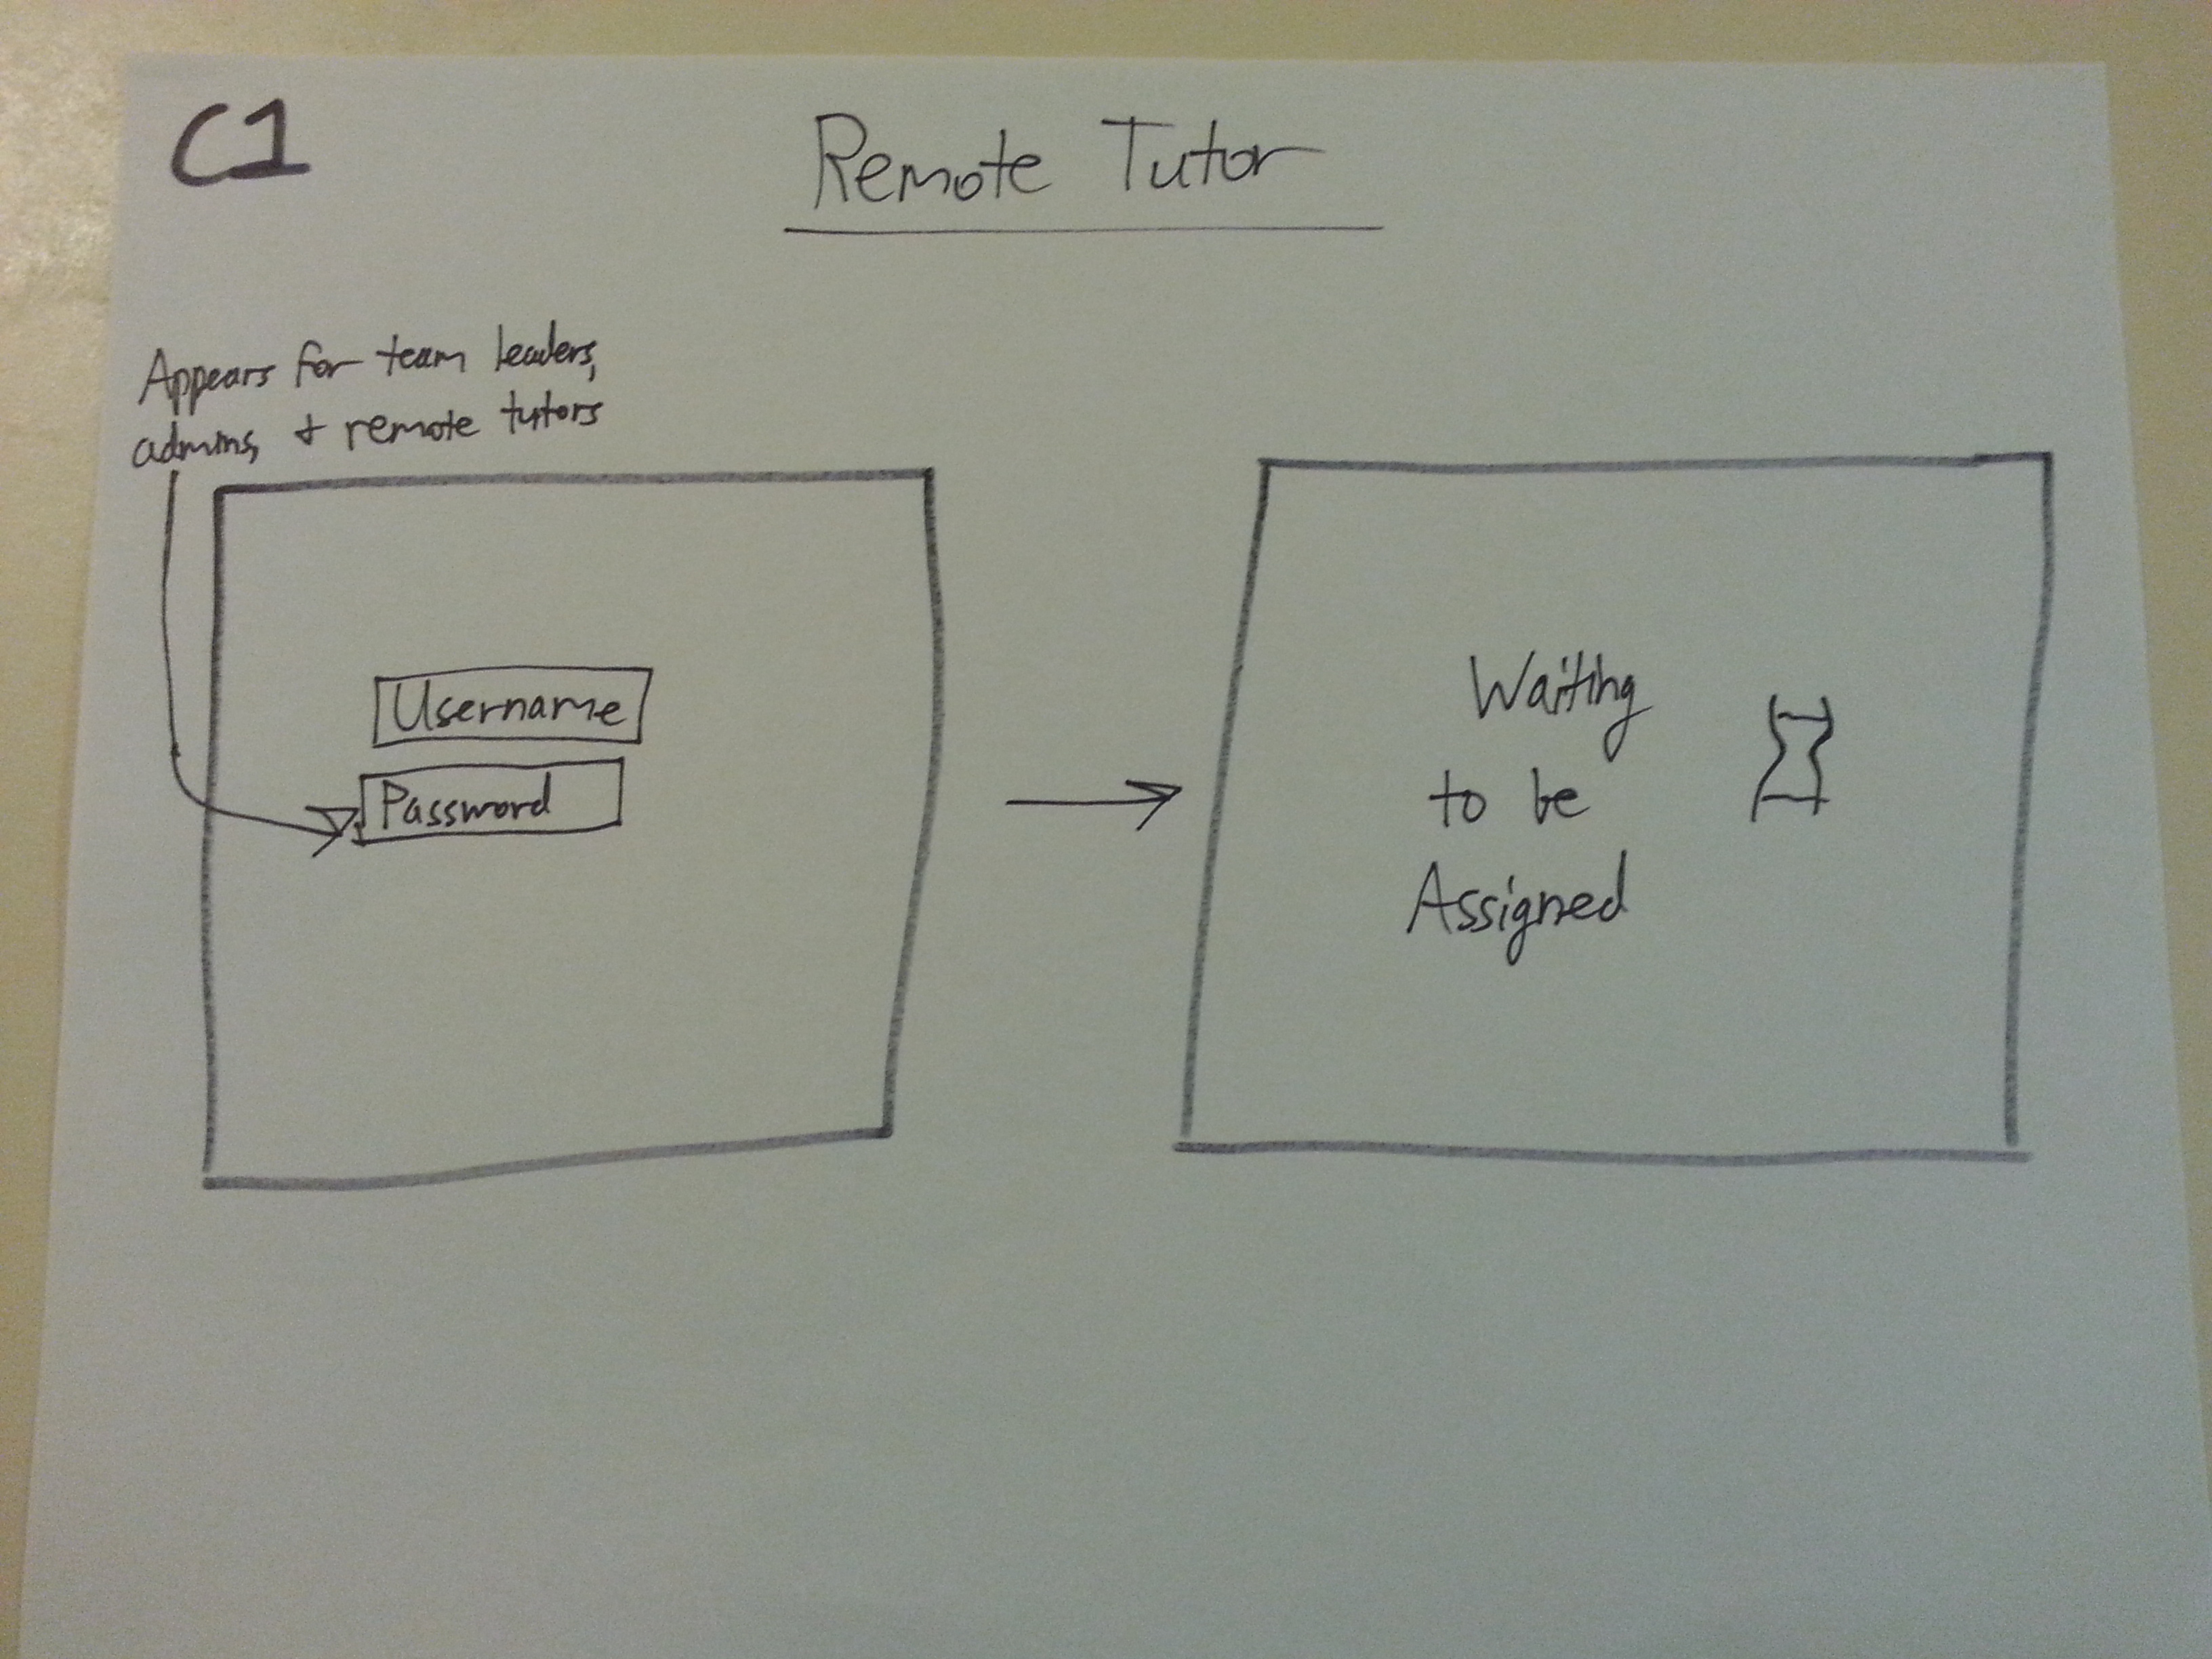 C1
Remote Tutor
Appears for team leaders,
admins, + remote tutors
Username
Password
Waiting
to be
Assigned